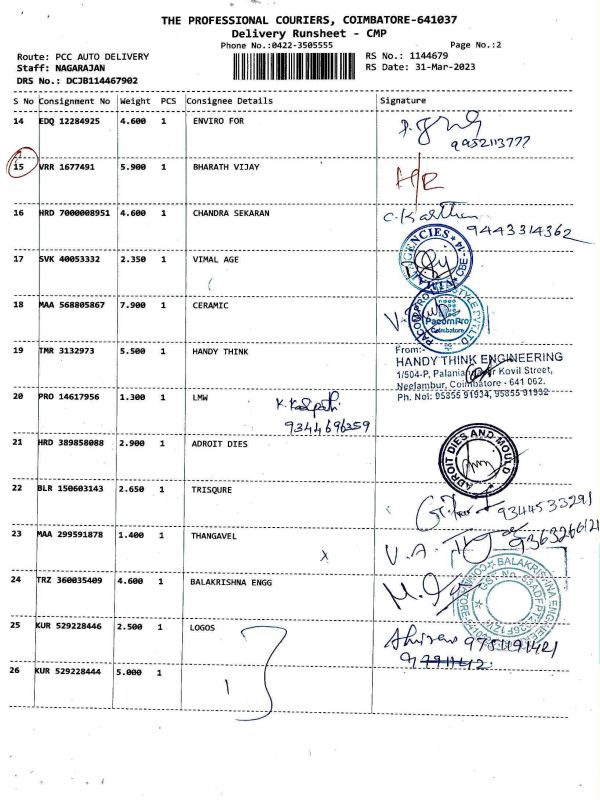 THE PROFESSIONAL COURIERS, COIMBATORE-641037
Delivery Runsheet - CMP
Phone No.:0422-3505555 Page No.:2
Route: PCC AUTO DELIVERY RS No.: 1144679
Staff: NAGARAJAN RS Date: 31-Mar-2023
DRS No.: DCJB114467902
S No Consignment No Weight PCS Consignee Details Signature
14 EDQ 12284925 4.600 1 ENVIRO FOR
9952113777
15 VRR 1677491 5.900 1 BHARATH VIJAY
16 HRD 7000008951 4.600 1 CHANDRA SEKARAN C. Karthi
9443314362
17 SVK 40053332 2.350 1 VIMAL AGE
18 MAA 568805867 7.900 1 CERAMIC
PacomPro
Coimbatore
19 TMR 3132973 5.500 1 HANDY THINK
From:
HANDY THINK ENGINEERING
1/504-P, Kovil Street,
Neelambur, Coimbatore - 641 062.
Ph. Nol: 95855 91934, 95855 91932
20 PRO 14617956 1.300 1 LMW
9344696359
21 HRD 389858088 2.900 1 ADROIT DIES
ADROIT DIES AND MOULD
22 BLR 150603143 2.650 1 TRISQURE
9344533291
23 MAA 299591878 1.400 1 THANGAVEL
24 TRZ 360035409 4.600 1 BALAKRISHNA ENGG
25 KUR 529228446 2.500 1 LOGOS
26 KUR 529228444 5.000 1